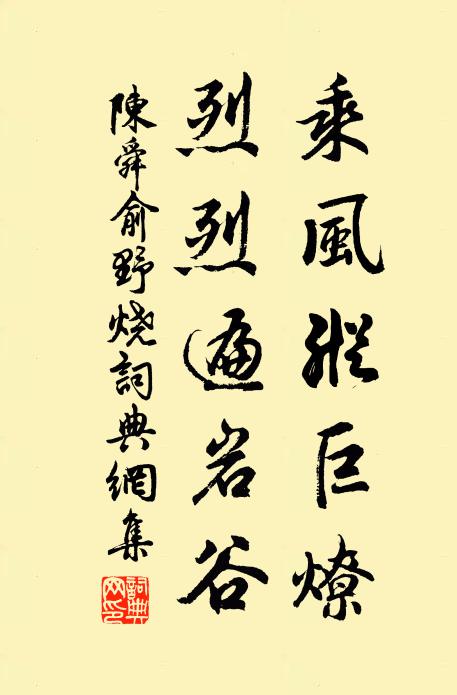 乘風縱巨燎
烈烈遍岩谷
陳舜俞野燒詞典網集
詞典網印